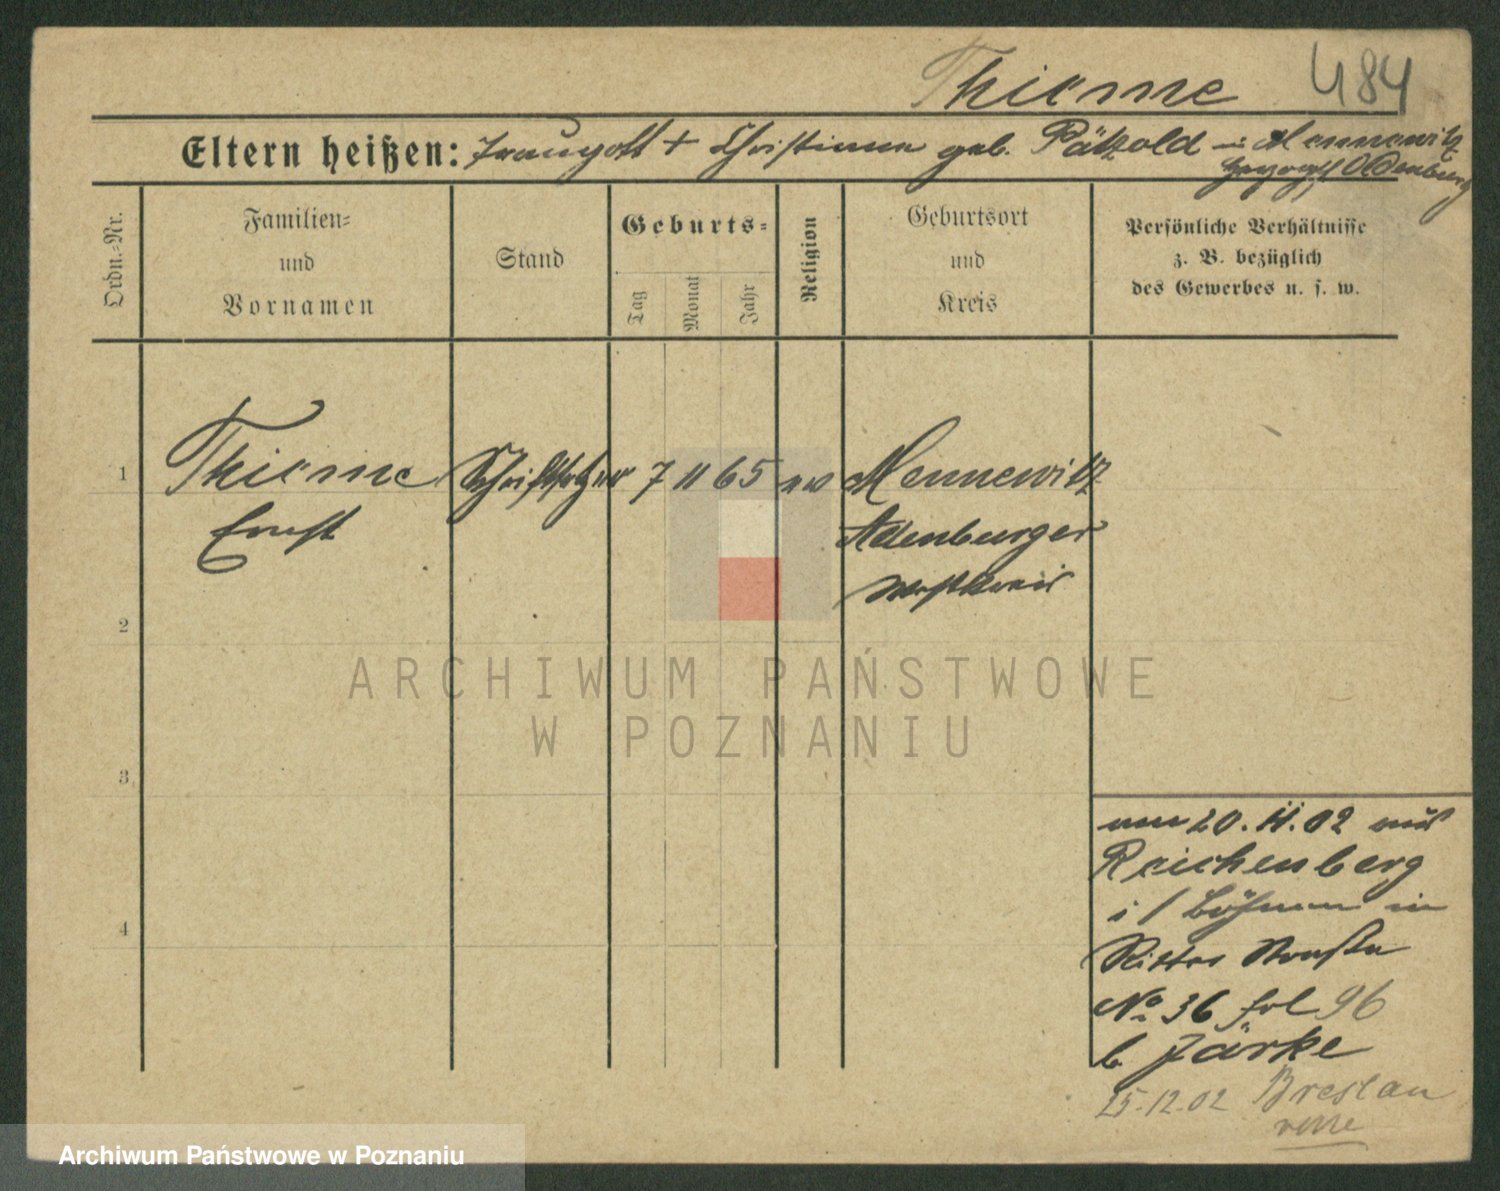 Thieme 484
Eltern heißen: Traugott + Christiane geb. Pätzold in Mennewitz
Herzogth
Ordn.=Nr.
Familien=
und
Vornamen
Stand
Geburts=
Tag
Monat
Jahr
Religion
Geburtsort
und
Kreis
Persönliche Verhältnisse
z. B. bezüglich
des Gewerbes u. s. w.
1 Thieme Schriftsetzer 7 11 65 ev Mennewitz
Ernst
Altenburger
Westkreis
2
3
4
am 20. 11. 02 aus
Reichenberg
i / Böhmen in
Ritter Straße
No 36 fol 96
b. Järke
25.12.02 Breslau
ARCHIWUM PAŃSTWOWE
W POZNANIU
Archiwum Państwowe w Poznaniu